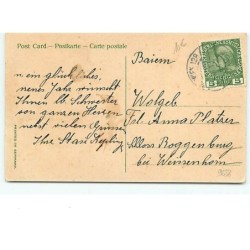 Post Card – Postkarte – Carte postale
Baiern
n. ein glückliches,
neues Jahr wünscht
Ihnen lb. Schwester
von ganzen Herzen
nebst vielen Grüssen
Ihre Stasi
Wolgeb.
Frl. Anna Platzer
Schloss Roggenburg
bei Weissenhorn
5
5